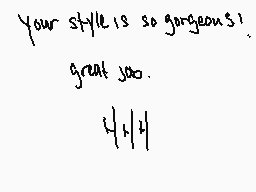 Your style is so gorgeous!
great job.